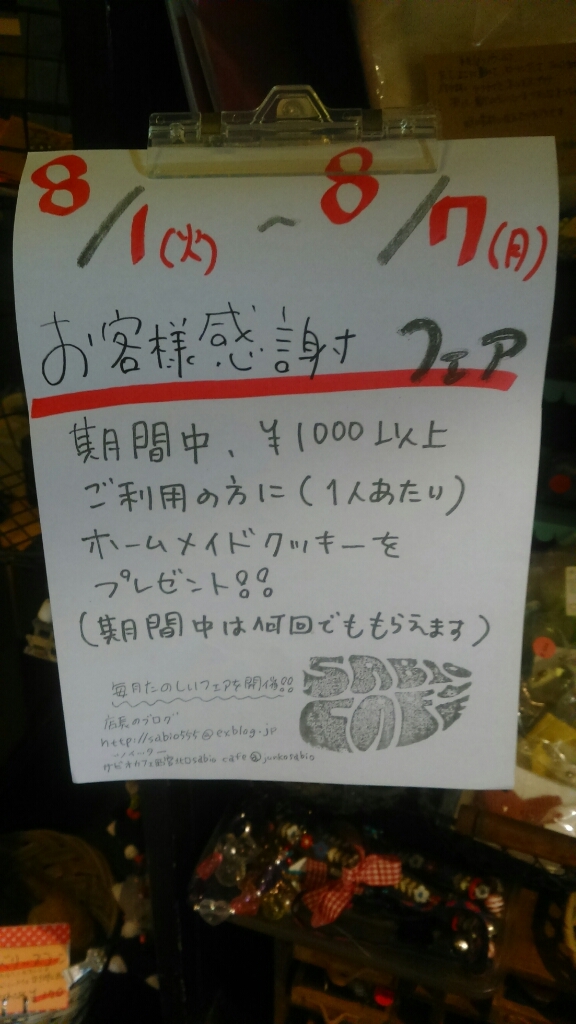 8/1(火)～8/7(月)
お客様感謝フェア
期間中、¥1000以上
ご利用の方に(1人あたり)
ホームメイドクッキーを
プレゼント!!
(期間中は何回でももらえます)
毎月たのしいフェアを開催!!
SABIO
CAFE
店長のブログ
http://sabio555@exblog.jp
ツイッター
sabio cafe @junkosabio